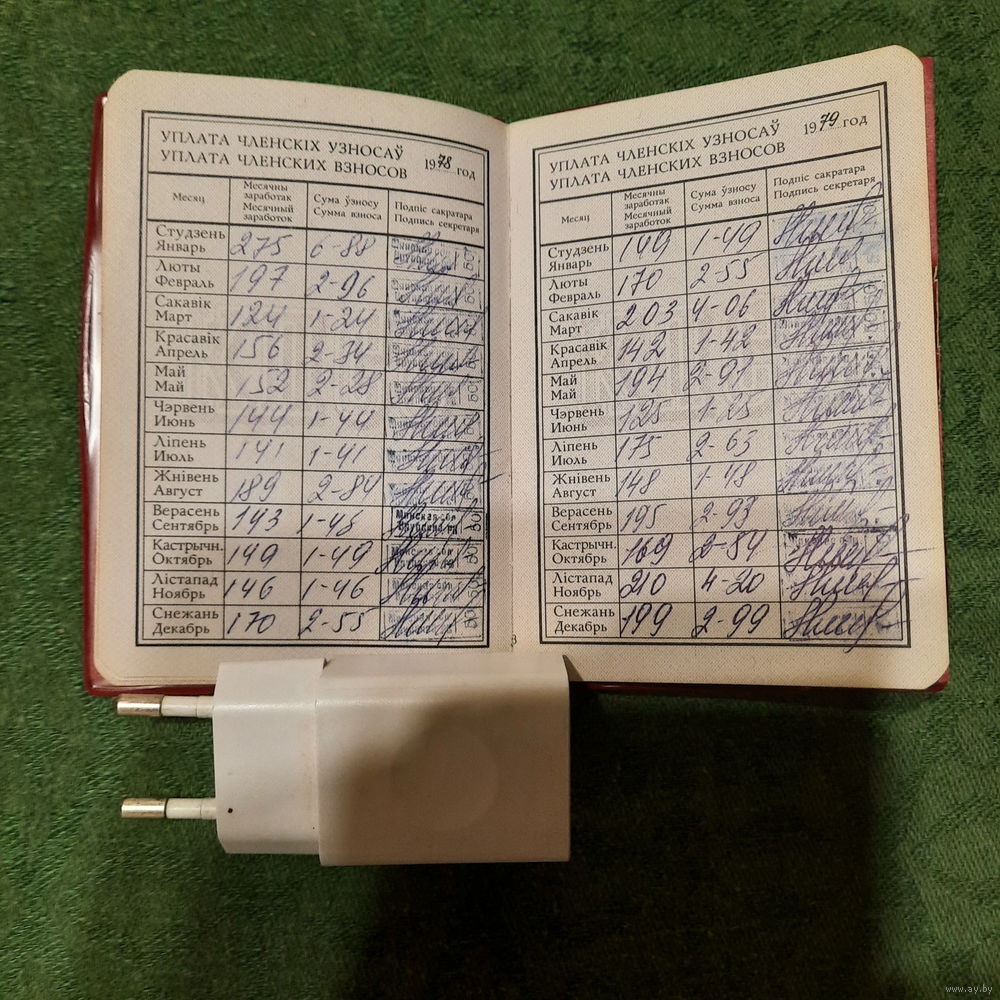 УПЛАТА ЧЛЕНСКІХ УЗНОСАЎ
УПЛАТА ЧЛЕНСКИХ ВЗНОСОВ
1978 год
Месяц
Месячны заработак
Месячный заработок
Сума ўзносу
Сумма взноса
Подпіс сакратара
Подпись секретаря
Студзень
Январь
275 6-88
Люты
Февраль
197 2-96
Сакавік
Март
124 1-24
Красавік
Апрель
156 2-34
Май
Май
152 2-28
Чэрвень
Июнь
144 1-44
Ліпень
Июль
141 1-41
Жнівень
Август
189 2-84
Верасень
Сентябрь
143 1-43
Минская обл
Кастрычн.
Октябрь
149 1-49
Лістапад
Ноябрь
146 1-46
Снежань
Декабрь
170 2-55
8
УПЛАТА ЧЛЕНСКІХ УЗНОСАЎ
УПЛАТА ЧЛЕНСКИХ ВЗНОСОВ
1979 год
Месяц
Месячны заработак
Месячный заработок
Сума ўзносу
Сумма взноса
Подпіс сакратара
Подпись секретаря
Студзень
Январь
149 1-49
Люты
Февраль
170 2-55
Сакавік
Март
203 4-06
Красавік
Апрель
142 1-42
Май
Май
194 2-91
Чэрвень
Июнь
125 1-25
Ліпень
Июль
175 2-63
Жнівень
Август
148 1-48
Верасень
Сентябрь
195 2-93
Кастрычн.
Октябрь
169 2-54
Лістапад
Ноябрь
210 4-20
Снежань
Декабрь
199 2-99
www.ay.by